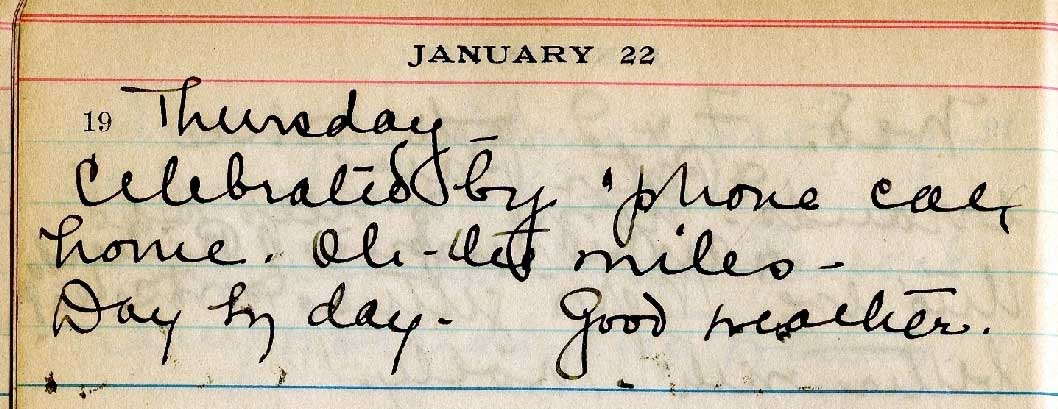 JANUARY 22
19 Thursday
Celebrated by 'phone call
home. miles -
Day by day. Good weather.